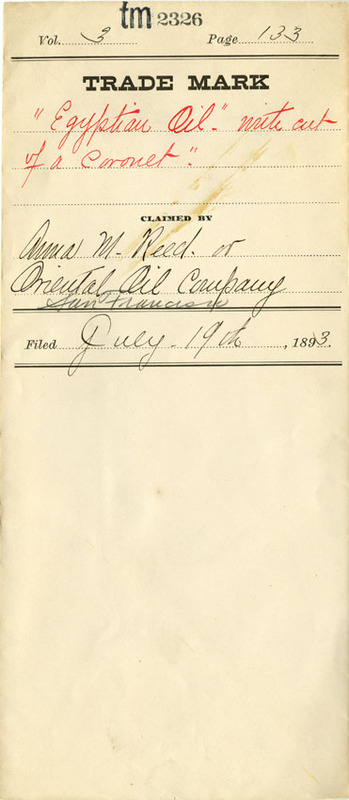 tm 2326
Vol. 3 Page 133
TRADE MARK
"Egyptian Oil." with cut
of a Coronet".
CLAIMED BY
Anna M. Reed. or
Oriental Oil Company
San Francisco
Filed July 19th, 1893.